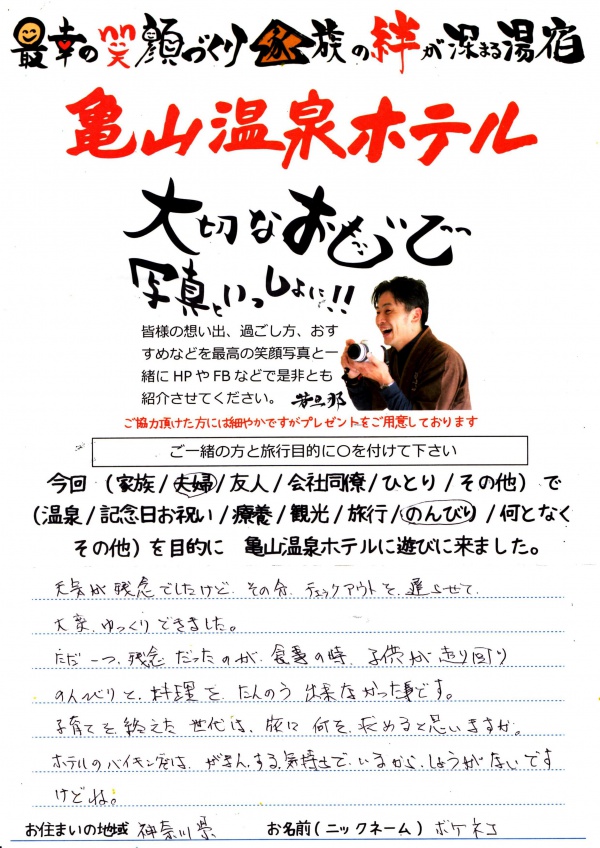 最幸の笑顔づくり 家族の絆が深まる湯宿
亀山温泉ホテル
大切なおもいで
写真といっしょに!!
皆様の想い出、過ごし方、おす
すめなどを最高の笑顔写真と一
緒にHPやFBなどで是非とも
紹介させてください。 若旦那
ご協力頂けた方には細やかですがプレゼントをご用意しております
ご一緒の方と旅行目的に〇を付けて下さい
今回 (家族/夫婦/友人/会社同僚/ひとり/その他) で
(温泉/記念日お祝い/療養/観光/旅行/のんびり/何となく
その他)を目的に 亀山温泉ホテルに遊びに来ました。
天気が残念でしたけど、その分、チェックアウトを遅らせて
大変、ゆっくりできました。
ただ一つ、残念だったのが、食事の時、子供が走り回り
のんびりと、料理をたんのう出来なかった事です。
子育てを終えた世代は、旅に何を求めると思いますか。
ホテルのバイキング夜は、がまんする気持ちでいるから、しょうがないです
けどね。
お住まいの地域 神奈川県 お名前(ニックネーム) ボケネコ